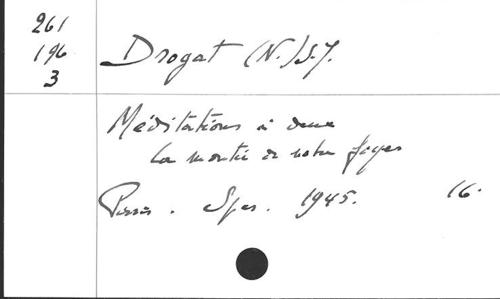 261
196
3
Drogat (N.) S.J.
Méditations à deux
la montée de notre foyer
Paris. Spes. 1945. 16.